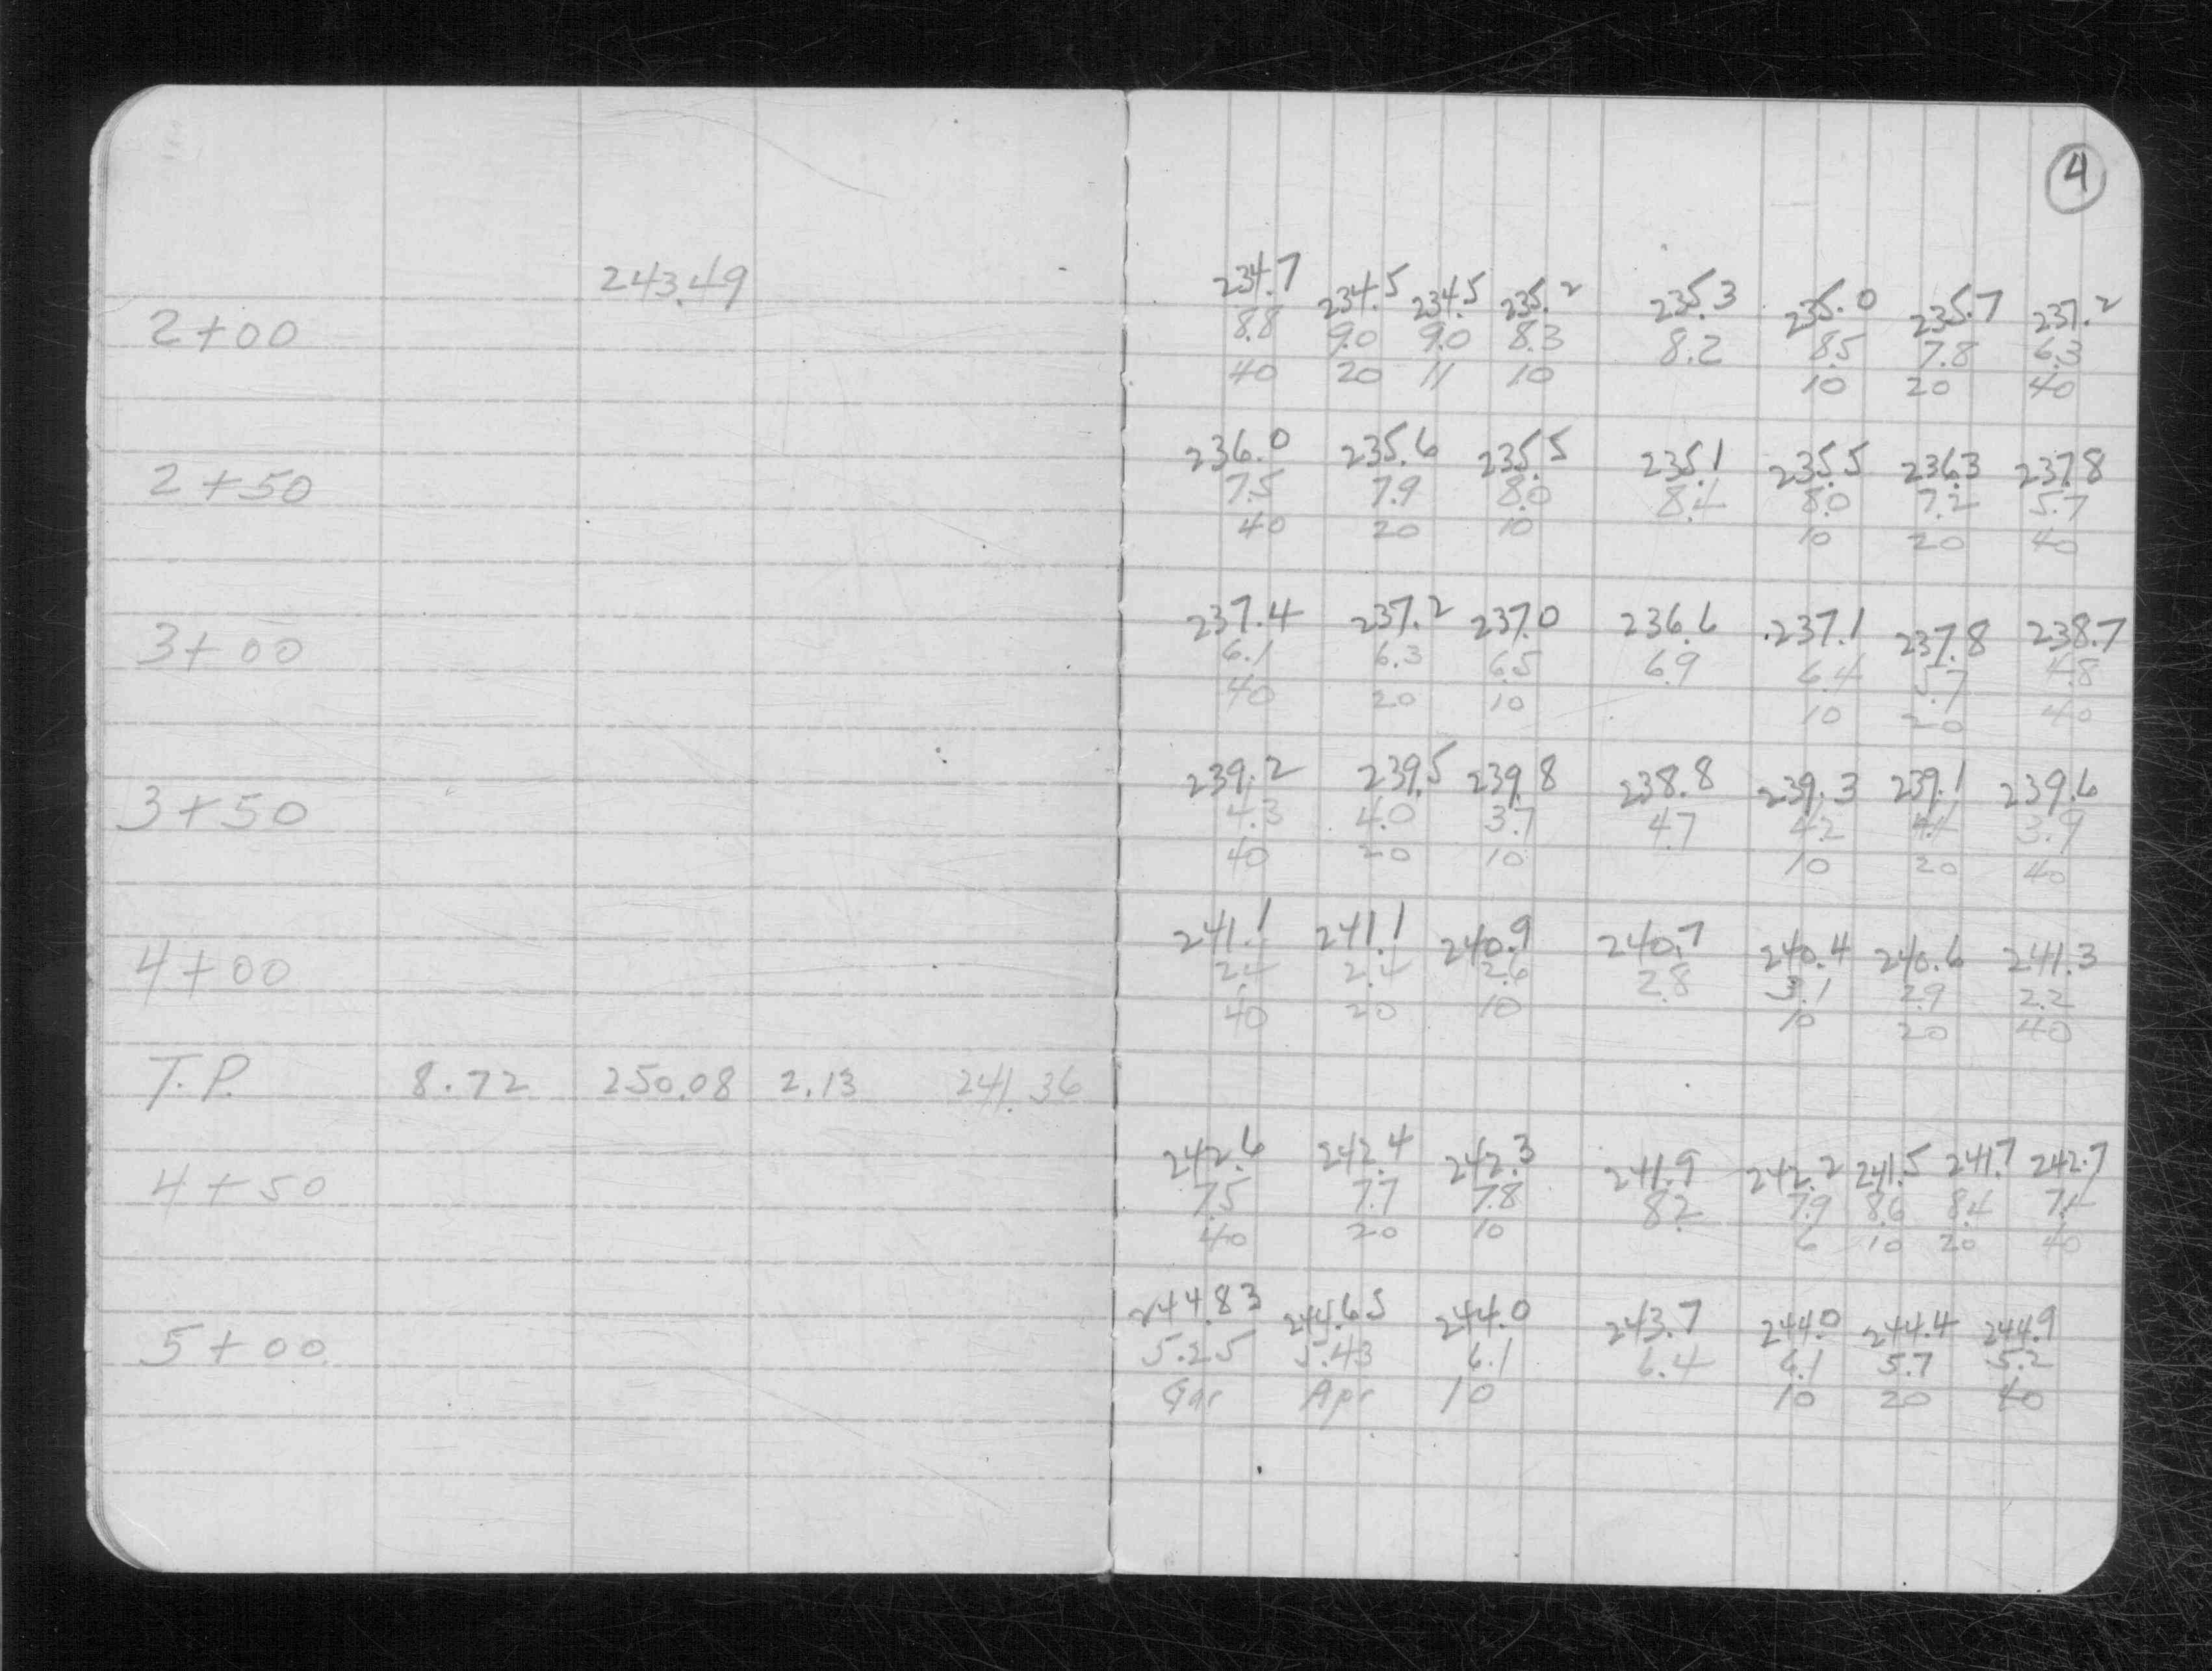 4
243.49
234.7 234.5 234.5 235.2 235.3 235.0 235.7 237.2
2+00 8.8 9.0 9.0 8.3 8.2 8.5 7.8 6.3
40 20 11 10 10 20 40
236.0 235.6 235.5 235.1 235.5 236.3 237.8
2+50 7.5 7.9 8.0 8.4 8.0 7.2 5.7
40 20 10 10 20 40
237.4 237.2 237.0 236.6 237.1 237.8 238.7
3+00 6.1 6.3 6.5 6.9 6.4 5.7 4.8
40 20 10 10 20 40
239.2 239.5 239.8 238.8 239.3 239.1 239.6
3+50 4.3 4.0 3.7 4.7 4.2 4.4 3.9
40 20 10 10 20 40
241.1 241.1 240.9 240.7 240.4 240.6 241.3
4+00 2.4 2.4 2.6 2.8 3.1 2.9 2.2
40 20 10 10 20 40
T.P. 8.72 250.08 2.13 241.36
242.6 242.4 242.3 241.9 242.2 241.5 241.7 242.7
4+50 7.5 7.7 7.8 8.2 7.9 8.6 8.4 7.4
40 20 10 6 10 20 40
244.83 244.65 244.0 243.7 244.0 244.4 244.9
5+00 5.25 5.43 6.1 6.4 6.1 5.7 5.2
Gar Apr 10 10 20 40